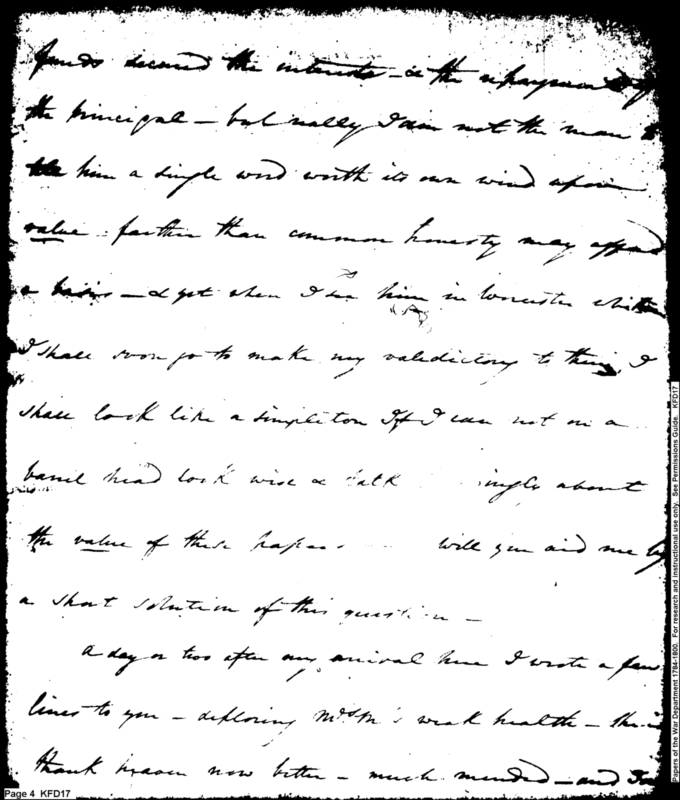 funds secured the interests - & the repayment of
the principal - but really I am not the man to
him a single word worth its own wind upon
value farther than common honesty may afford
a basis - & yet when I see him in Worcester whither
I shall soon go to make my valedictory to them, I
shall look like a simpleton If I can not on a
barrel head look wise & talk about
the value of these papers will you aid me by
a short solution of this question -
a day or two after my arrival here I wrote a few
lines to you - deploring Mrs M's weak health - she is
thank heaven now better - much mended - and
Page 4 KFD17
Papers of the War Department 1784-1800. For research and instructional use only. See Permissions Guide. KFD17